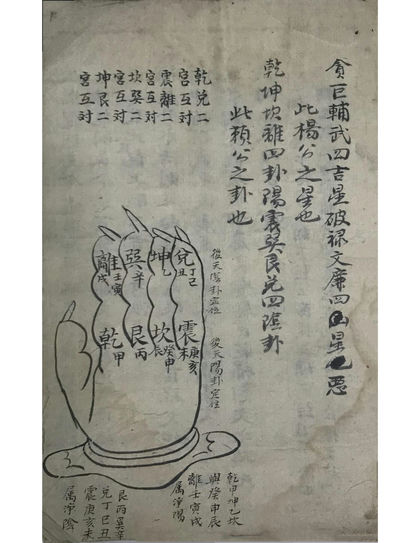 貪巨輔武四吉星破祿文廉四凶星惡
此楊公之星也
乾坤坎離四卦陽震巽艮兌四陰卦
此賴公之卦也
乾兌二
宮互対
震離二
宮互対
坎巽二
宮互対
坤艮二
宮互対
後天陰卦定位
後天陽卦定位
兌丁巳丑
坤乙
巽辛
離壬寅戌
震庚亥未
坎癸申辰
艮丙
乾甲
乾甲坤乙坎
與癸申辰
離壬寅戌
属淨陽
艮丙巽辛
兌丁巳丑
震庚亥未
属淨陰